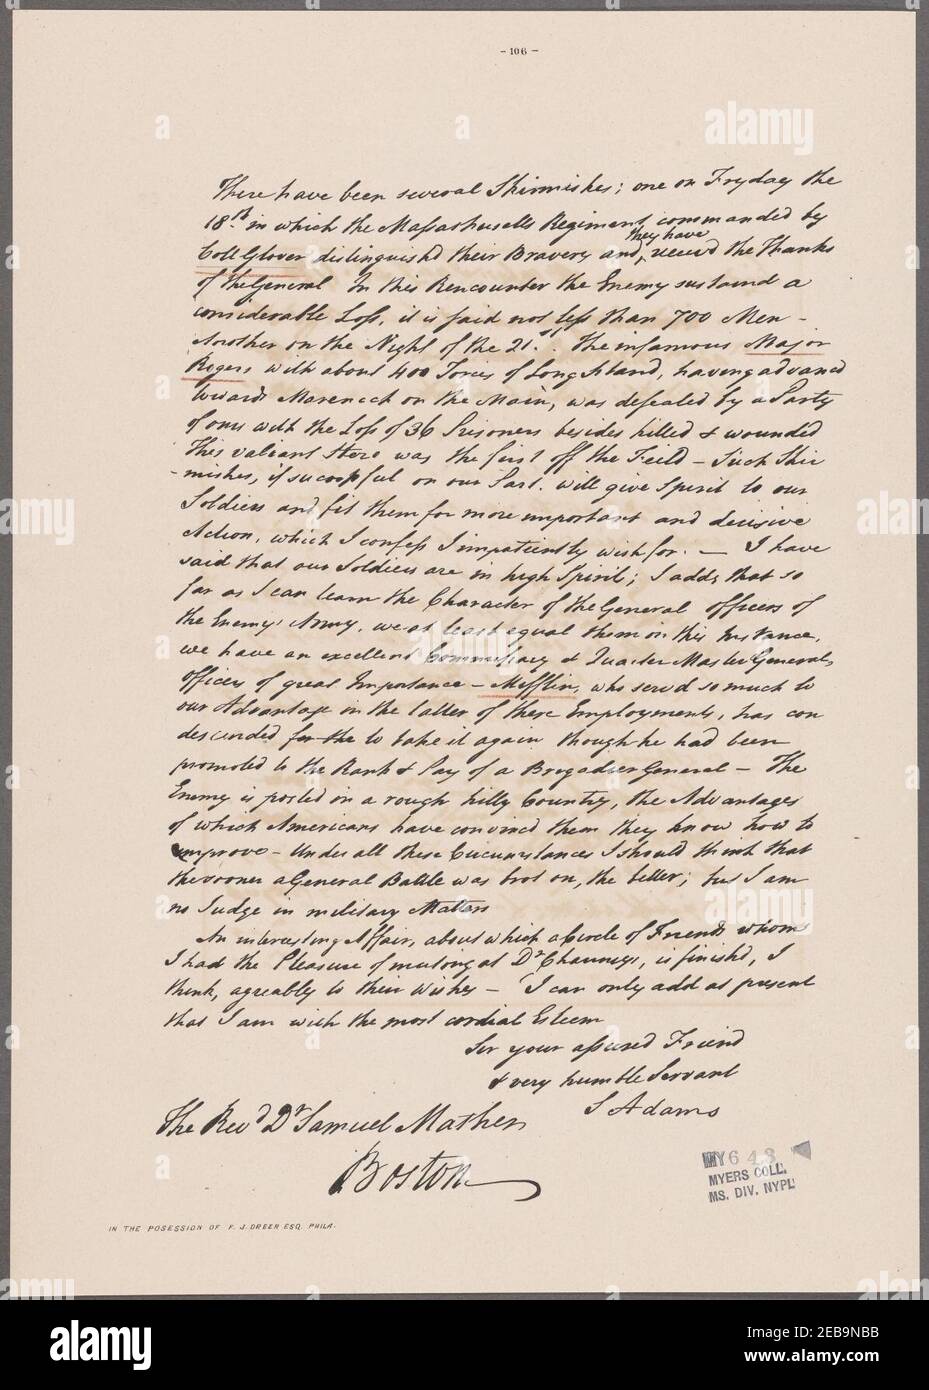 - 106 -
There have been several Skirmishes; one on Fryday the
18th. in which the Massachusetts Regiment commanded by
they have
Coll Glover distinguishd their Bravery and, receivd the Thanks
of the General In this Rencounter the Enemy sustaind a
considerable Loss, it is said not less than 700 Men -
Another on the Night of the 21st. The infamous Major
Rogers with about 400 Tories of Long Island, having advancd
towards Mareneck on the Main, was defeated by a Party
of ours with the Loss of 36 Prisoners besides killed & wounded
This valiant Hero was the first off the Feild - Such Skir
- mishes, if successful on our Part, will give Spirit to our
Soldiers and fit them for more important and decisive
Action, which I confess I impatiently wish for. — I have
said that our Soldiers are in high Spirit; I add, that so
far as I can learn the Character of the General officers of
the Enemys Army, we at least equal them in this Instance.
we have an excellent Commissary & Quarter Master General,
officers of great Importance - Mifflin, who servd so much to
our Advantage in the latter of these Employments, has con
descended for the to take it again though he had been
promoted to the Rank & Pay of a Brigadier General — The
Enemy is posted in a rough hilly Country, the Advantages
of which Americans have convincd them they know how to
improve - Under all these Circumstances I should think that
the sooner a General Battle was brot on, the better; but I am
no Judge in military Matters
An interesting Affair, about which a Circle of Friends whom
I had the Pleasure of meeting at Dr Chauncys, is finishd, I
think, agreably to their Wishes — I can only add at present
that I am with the most cordial Esteem
Sir your assured Friend
& very humble Servant
S Adams
The Revd Dr Samuel Mather
Boston
MY 643
MYERS COLL.
MS. DIV. NYPL
IN THE POSESSION OF F. J. DREER ESQ. PHILA.
alamy
Image ID: 2EB9NBB
www.alamy.com